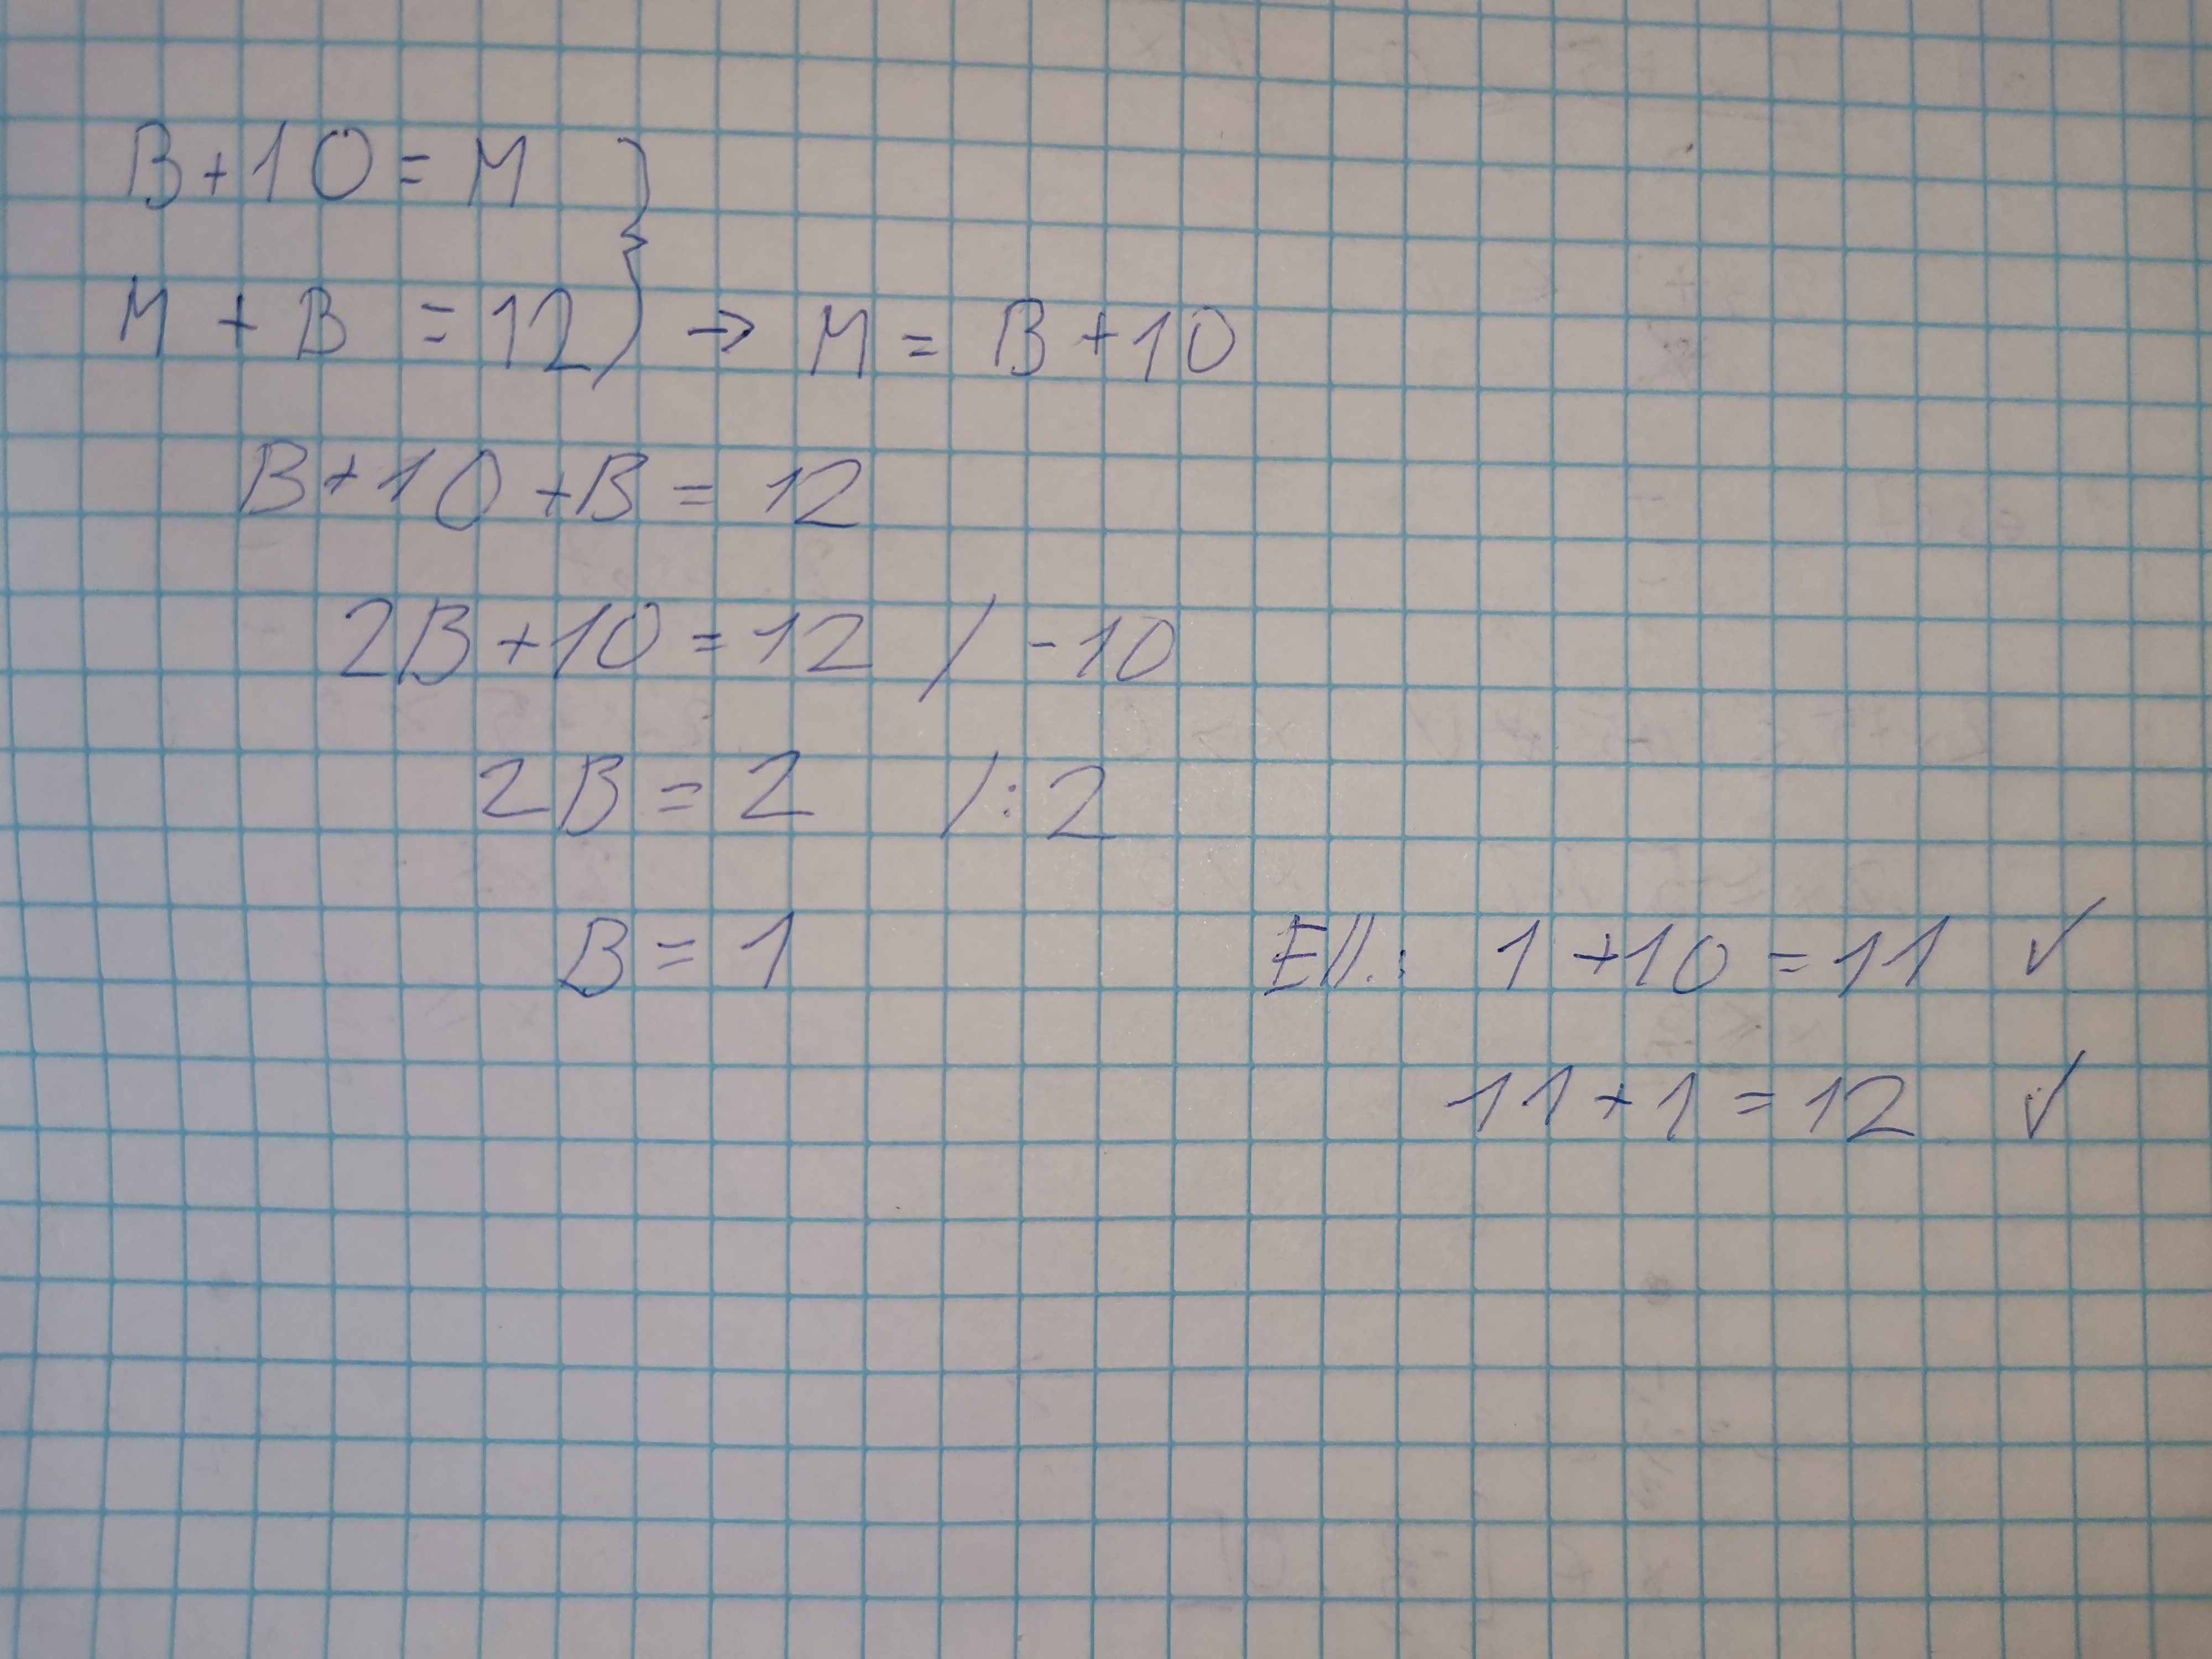 B+10=M
M+B=12 → M=B+10
B+10+B=12
2B+10=12 / -10
2B=2 /:2
B=1
Ell.: 1+10=11 ✓
11+1=12 ✓